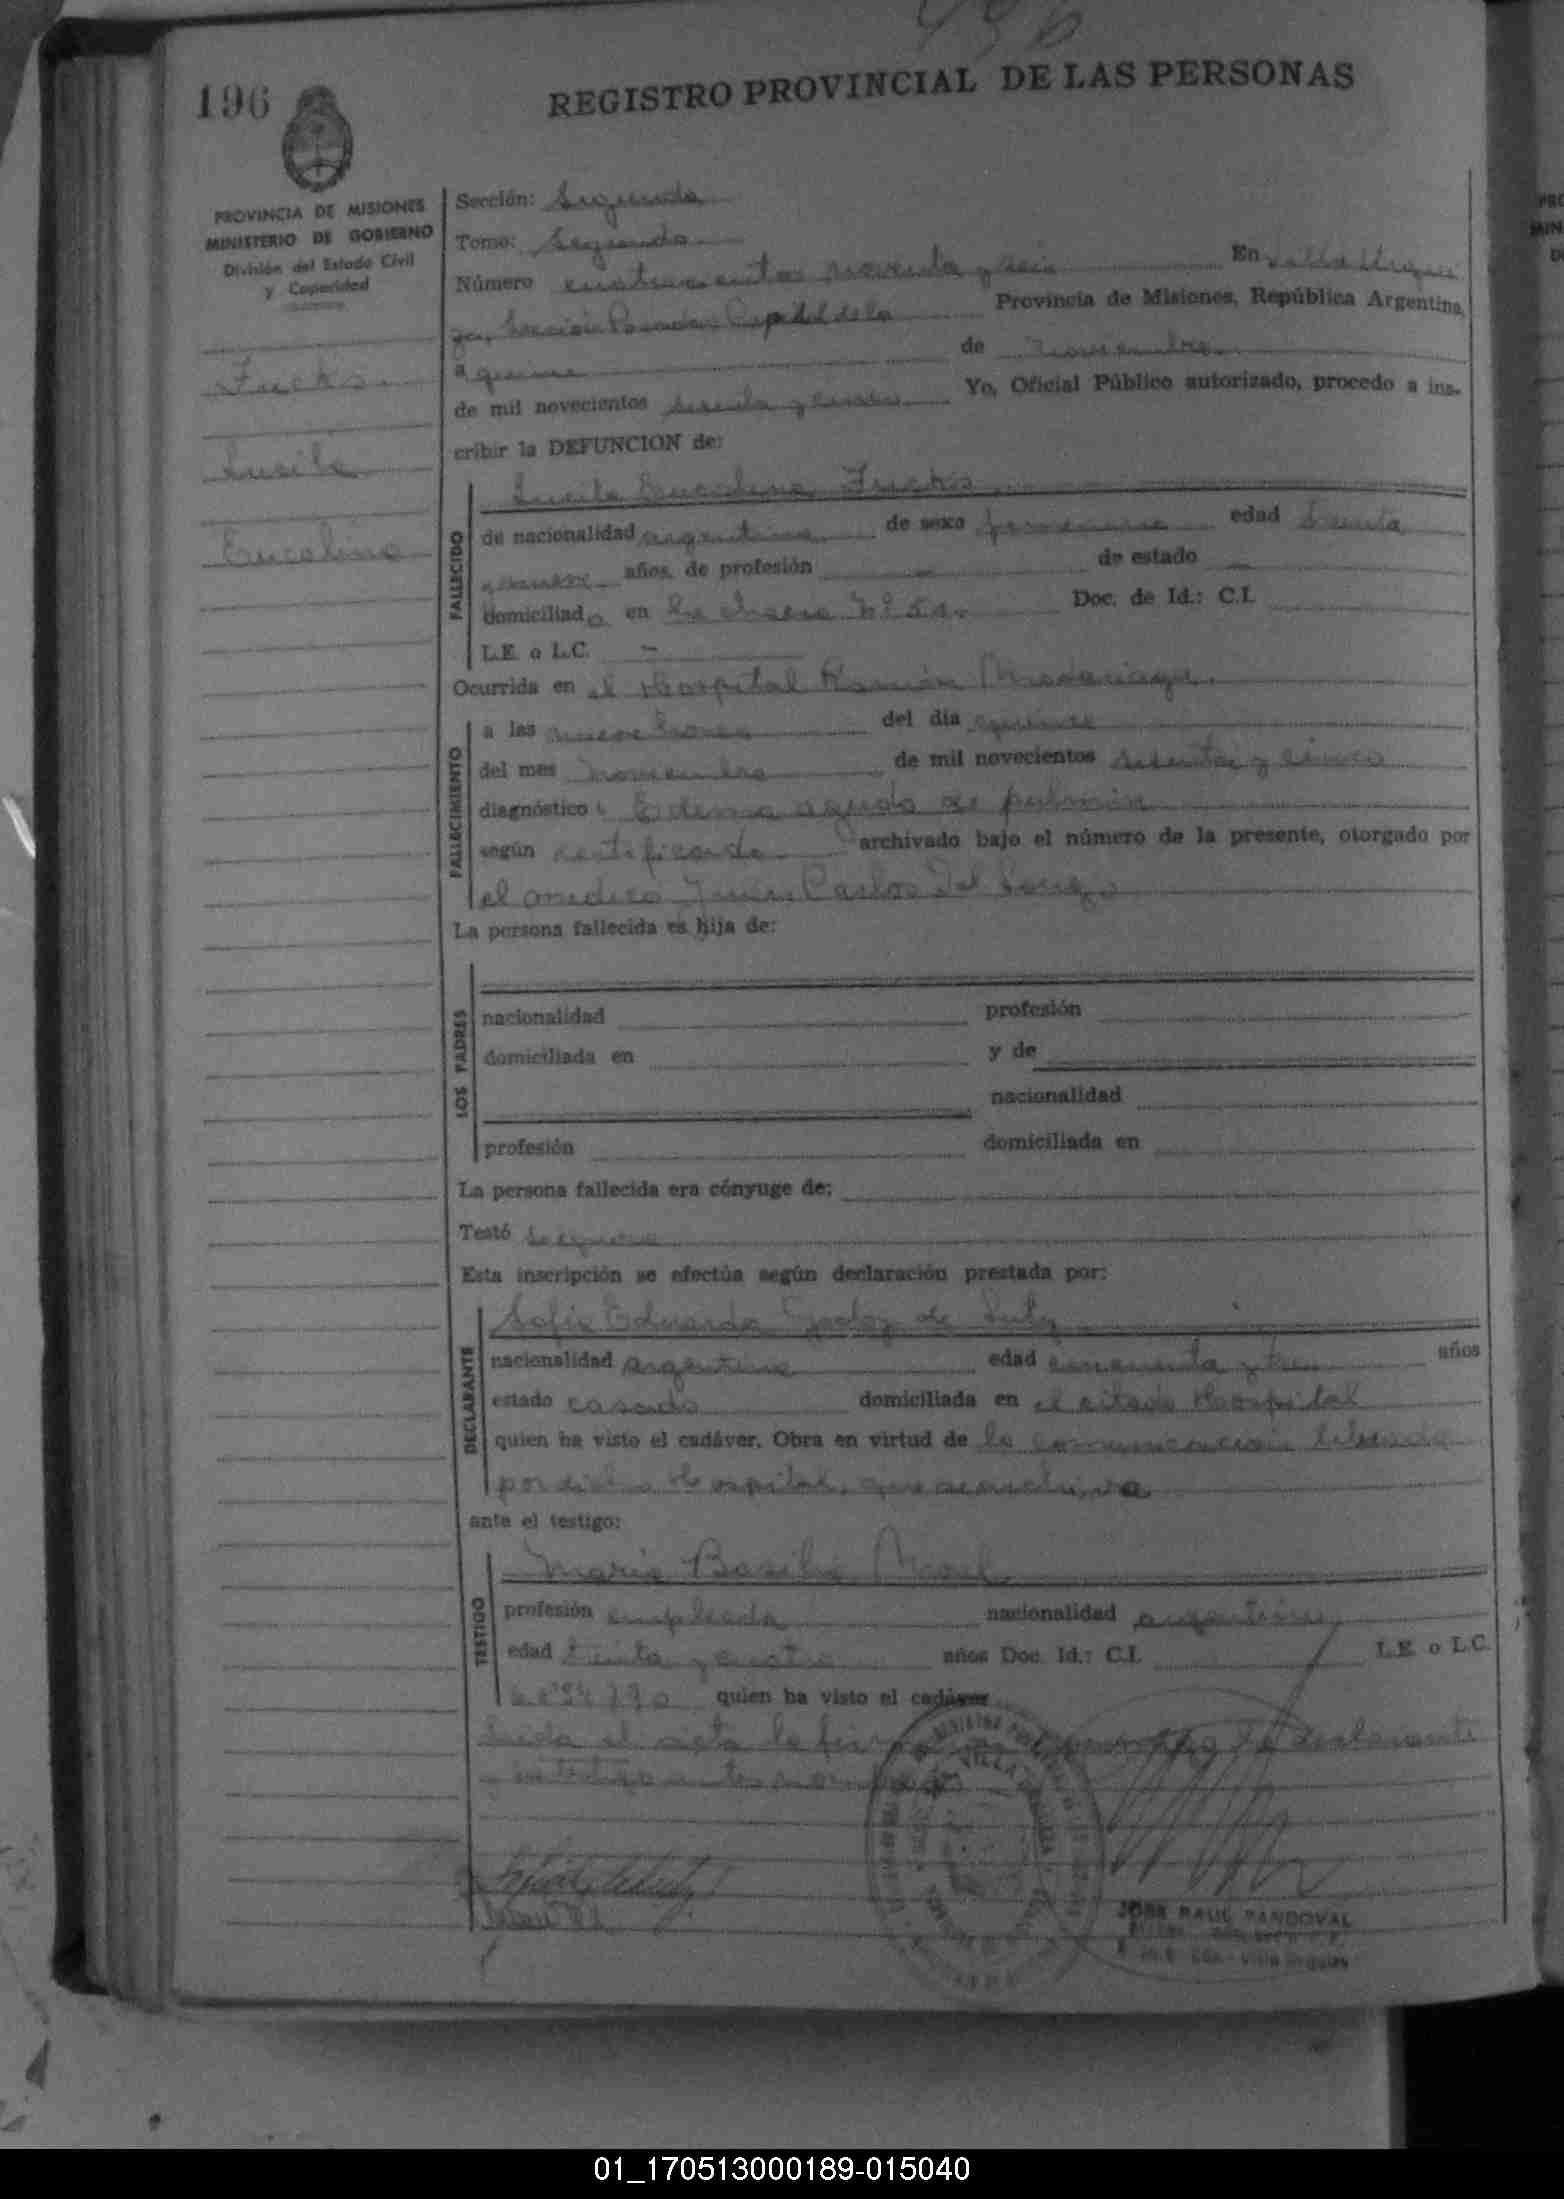 496
196
REGISTRO PROVINCIAL DE LAS PERSONAS
PROVINCIA DE MISIONES
MINISTERIO DE GOBIERNO
División del Estado Civil
y Capacidad
Fucks
Lucila
Eucolina
Sección: Segunda
Tomo: Segundo
Número cuatrocientos noventa y seis En Villa Urqui
za, Sección Posadas Capital de la Provincia de Misiones, República Argentina,
a quince de noviembre
de mil novecientos setenta y cinco Yo, Oficial Público autorizado, procedo a ins-
cribir la DEFUNCION de:
FALLECIDO
Lucila Eucolina Fucks
de nacionalidad argentina de sexo femenino edad treinta
y nueve años, de profesión — de estado —
domiciliada en la chacra Nº 51. Doc. de Id.: C.I.
L.E. o L.C. —
Ocurrida en el Hospital Ramón Madariaga.
FALLECIMIENTO
a las nueve horas del día quince
del mes noviembre de mil novecientos setenta y cinco
diagnóstico: Edema agudo de pulmón
según certificado archivado bajo el número de la presente, otorgado por
el medico Juan Carlos Del
La persona fallecida es hija de:
LOS PADRES
nacionalidad profesión
domiciliada en y de
nacionalidad
profesión domiciliada en
La persona fallecida era cónyuge de:
Testó se ignora
Esta inscripción se efectúa según declaración prestada por:
DECLARANTE
Sofia Eduarda Godoy de
nacionalidad argentina edad cincuenta y tres años
estado casada domiciliada en el citado Hospital
quien ha visto el cadáver. Obra en virtud de la comunicación librada
por dicho Hospital, que se archiva
ante el testigo:
TESTIGO
Maria Basilia
profesión empleada nacionalidad argentina
edad treinta y cuatro años Doc. Id.: C.I. L.E. o L.C.
quien ha visto el cadáver
Leida el acta la firman conmigo la declarante
y el testigo antes nombrados
VILLA URQUIZA
JOSE RAUL SANDOVAL
01_170513000189-015040